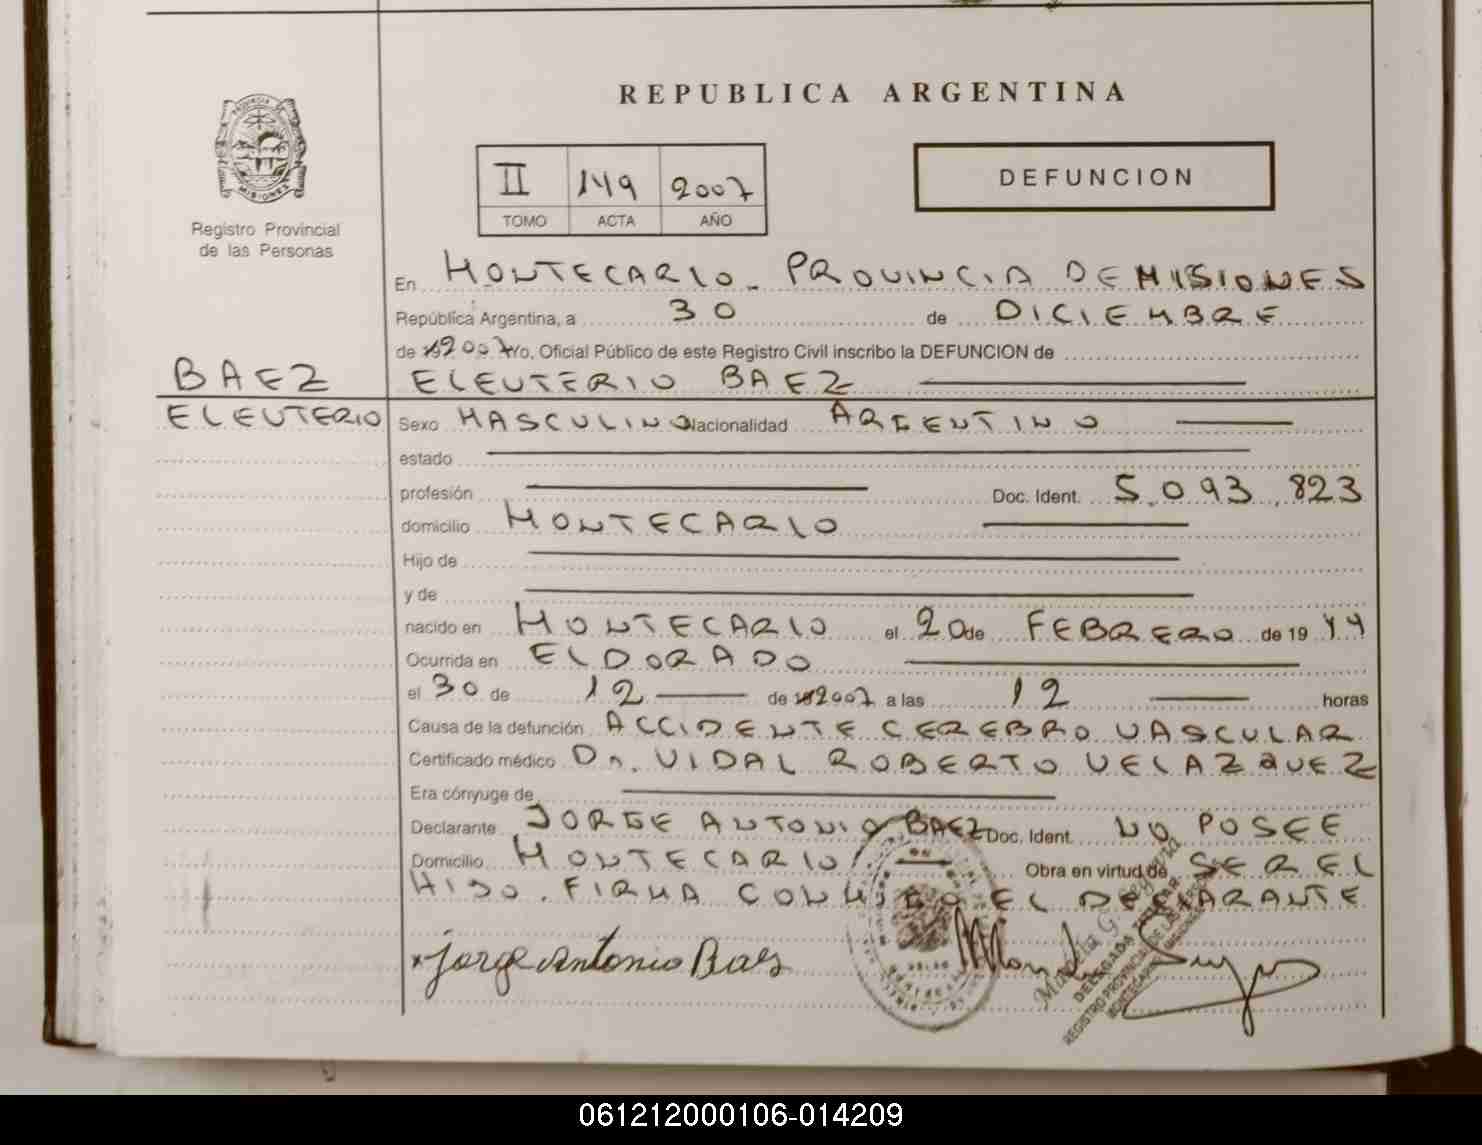 REPUBLICA ARGENTINA
PROVINCIA DE
MISIONES
Registro Provincial
de las Personas
II 149 2007
TOMO ACTA AÑO
DEFUNCION
En MONTECARLO. PROVINCIA DE MISIONES
República Argentina, a 30 de DICIEMBRE
de 192007 Yo, Oficial Público de este Registro Civil inscribo la DEFUNCION de
BAEZ
ELEUTERIO BAEZ
ELEUTERIO
Sexo MASCULINO Nacionalidad ARGENTINO
estado
profesión Doc. Ident. 5.093.823
domicilio MONTECARLO
Hijo de
y de
nacido en MONTECARLO el 20 de FEBRERO de 19 44
Ocurrida en ELDORADO
el 30 de 12 de 192007 a las 12 horas
Causa de la defunción ACCIDENTE CEREBRO VASCULAR
Certificado médico Dr. VIDAL ROBERTO VELAZQUEZ
Era cónyuge de
Declarante JORGE ANTONIO BAEZ Doc. Ident. NO POSEE
Domicilio MONTECARLO Obra en virtud de SER EL
HIJO. FIRMA CONMIGO EL DECLARANTE
x Jorge Antonio Baes
DELEGADA TITULAR
REGISTRO PROVINCIAL DE LAS PERSONAS
061212000106-014209